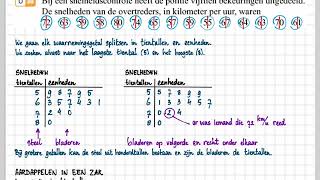 Bij een snelheidscontrole heeft de politie vijftien bekeuringen uitgedeeld.
De snelheden van de overtreders, in kilometer per uur, waren
We gaan elk waarnemingsgetal splitsen in tientallen en eenheden.
We zoeken alvast naar het laagste tiental (5) en het hoogste (8).
SNELHEDEN
tientallen eenheden
5 9 8 7 9 5
6 3 5 7 4 3 1
7 2 4 0
8 0
steel bladeren
SNELHEDEN
tientallen eenheden
5 5 7 8 9 9
6 1 3 3 4 5 7
7 0 2 4
8 0
er was iemand die 72 km/u reed
bladeren op volgorde en recht onder elkaar
Bij grotere getallen kan de steel uit honderdtallen bestaan en zijn de bladeren de tientallen.
AARDAPPELEN IN EEN ZAK